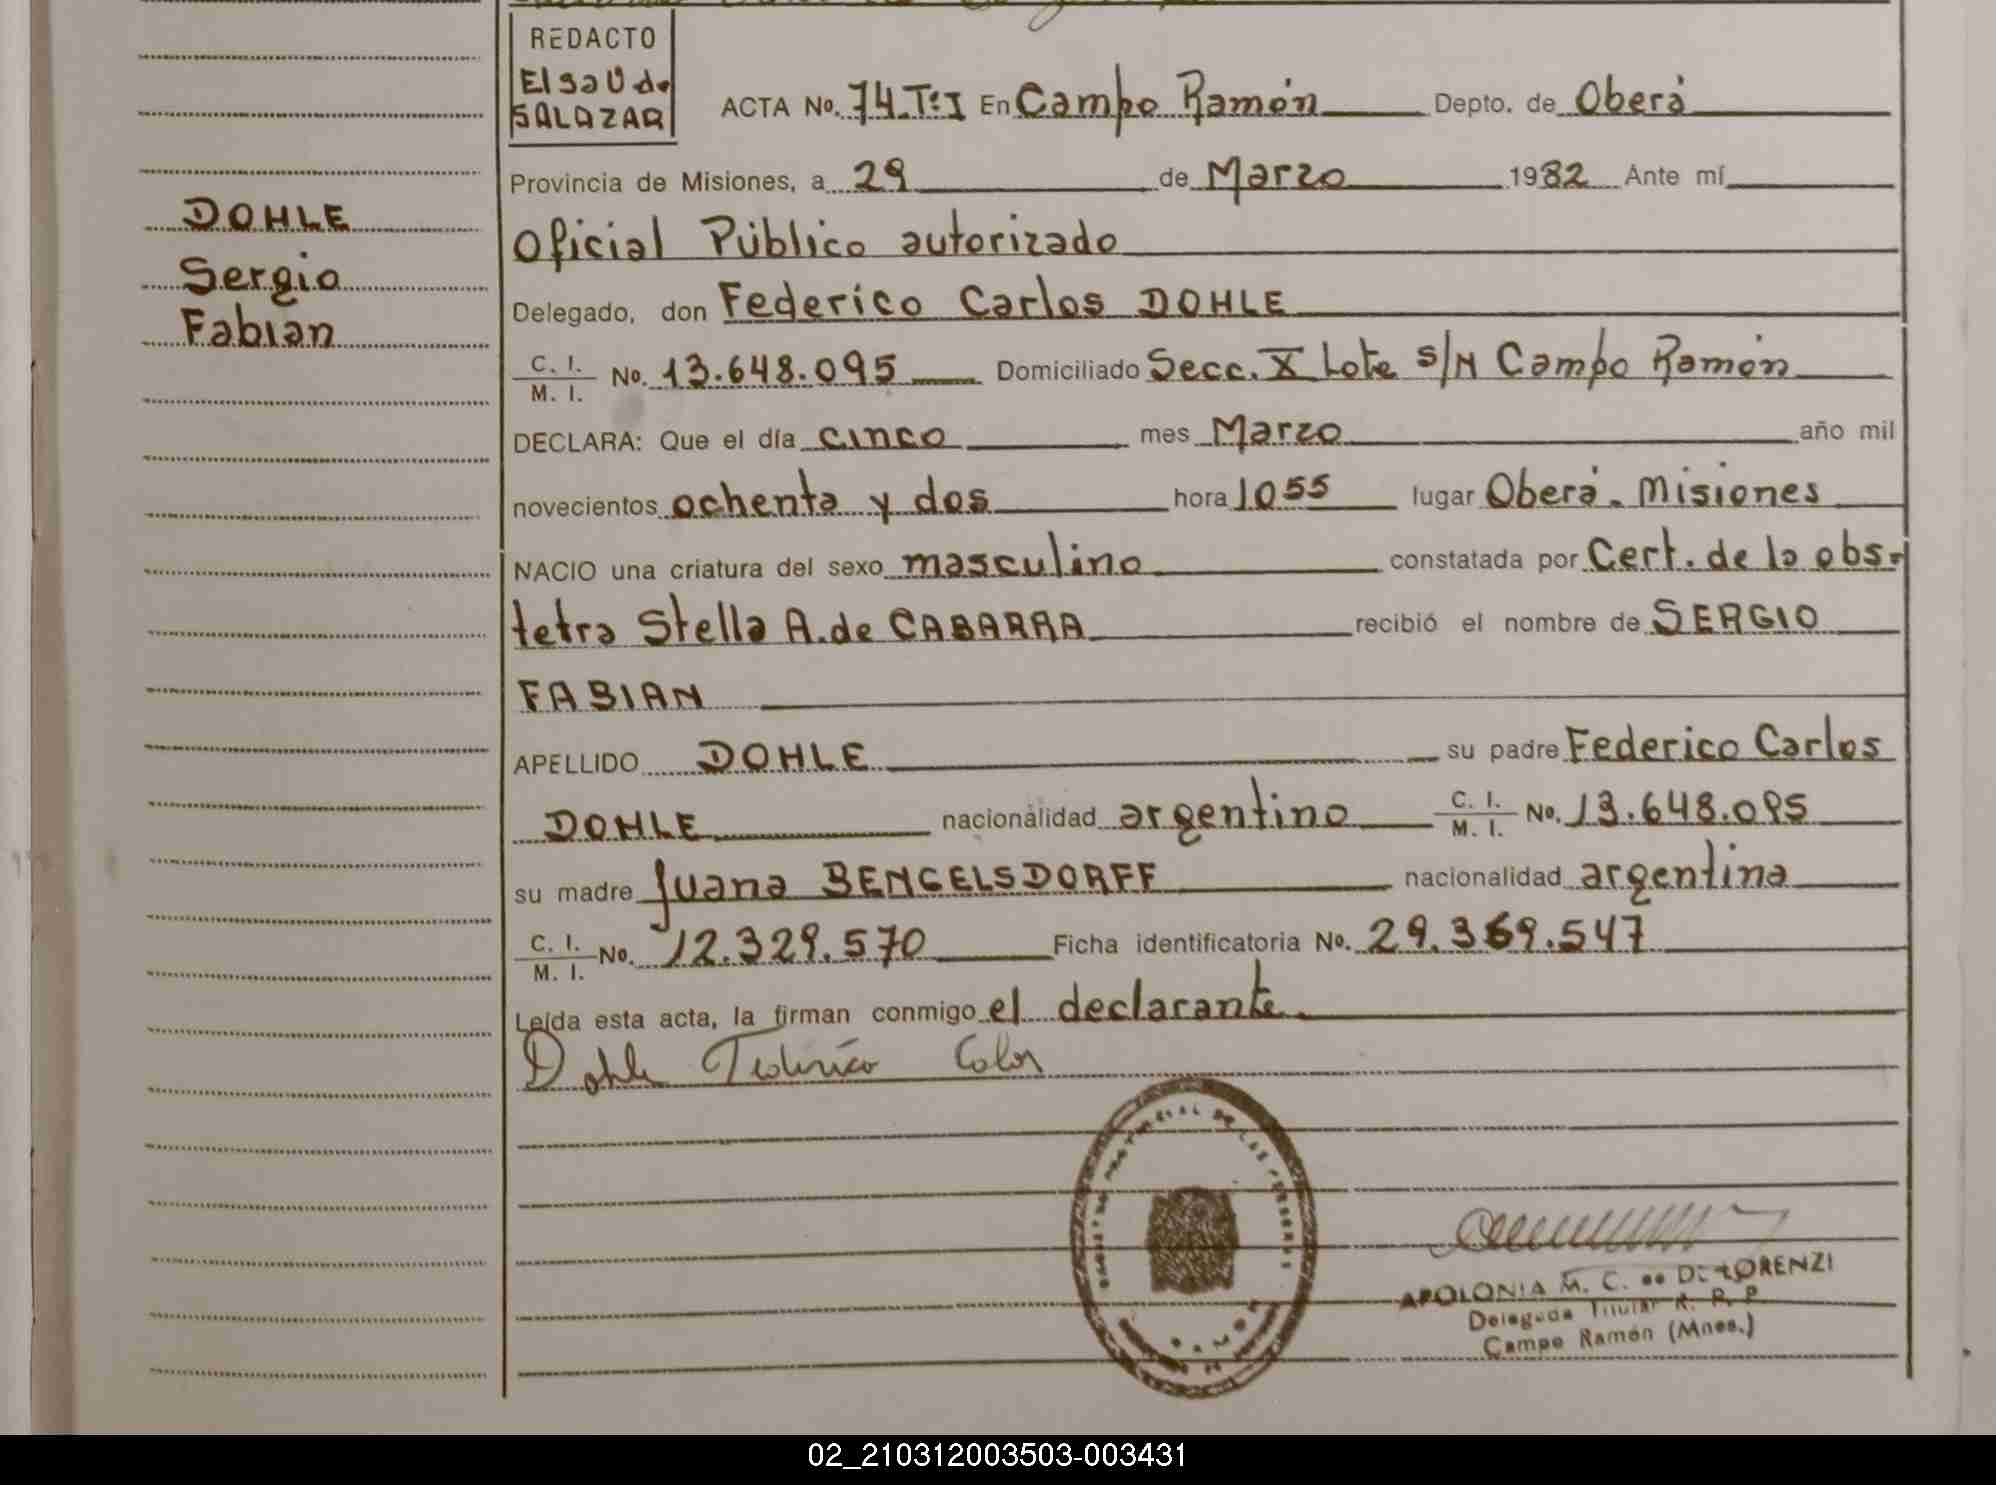 REDACTO
Elsa U de
SALAZAR
ACTA No. 74.Tº I En Campo Ramón Depto. de Oberá
Provincia de Misiones, a 29 de Marzo 1982 Ante mí
Oficial Público autorizado
Delegado, don Federico Carlos DOHLE
C. I.
M. I. No. 13.648.095 Domiciliado Secc. X Lote S/N Campo Ramón
DECLARA: Que el día cinco mes Marzo año mil
novecientos ochenta y dos hora 10 55 lugar Oberá. Misiones
NACIO una criatura del sexo masculino constatada por Cert. de la obs-
tetra Stella A. de CABARRA recibió el nombre de SERGIO
FABIAN
APELLIDO DOHLE su padre Federico Carlos
DOHLE nacionalidad argentino C. I. M. I. No. 13.648.095
su madre Juana BENGELSDORFF nacionalidad argentina
C. I.
M. I. No. 12.329.570 Ficha identificatoria No. 29.369.547
Leída esta acta, la firman conmigo el declarante.
Dohle Federico
DOHLE
Sergio
Fabian
APOLONIA M. C. de DI LORENZI
Delegada Titular R. P. P.
Campo Ramón (Mnes.)
02_210312003503-003431